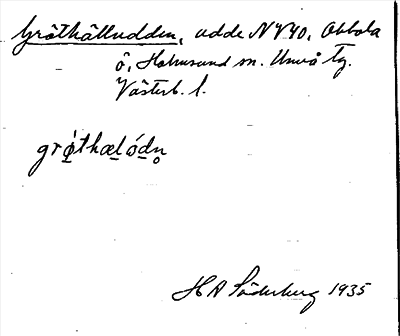 Gråthälludden, udde NV40, Obbola
ö, Holmsund sn. Umeå tg.
Västerb. l.
grò̤thælódn̥
H A Söderberg 1935